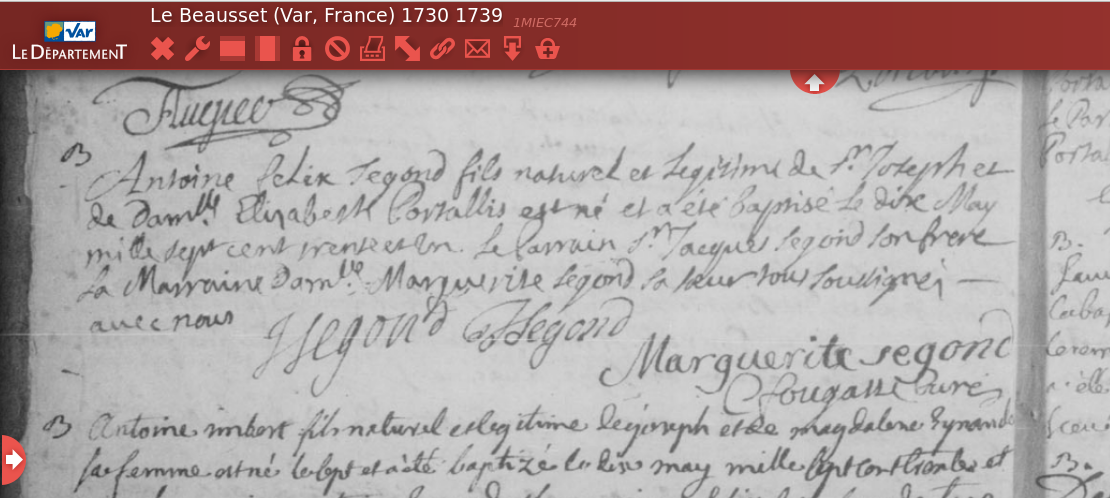 Le Beausset (Var, France) 1730 1739 1MIEC744
VAR
LE DÉPARTEMENT
B
Antoine felix Segond fils naturel et Legitime de Sr Joseph et
de Damlle Elizabeth Portallis est né et a été baptisé le dixe May
mille sept cent trente et un. Le Parrain Sr Jacques Segond son frere
La Marraine Damlle Marguerite Segond sa sœur tous soussignés
avec nous Segond Segond
Marguerite segond
fougasse Curé
B Antoine imbert fils naturel et legitime de joseph et de magdalene
sa femme est né le sept et a été baptizé le dix may mille sept cent trente et
B.
B.